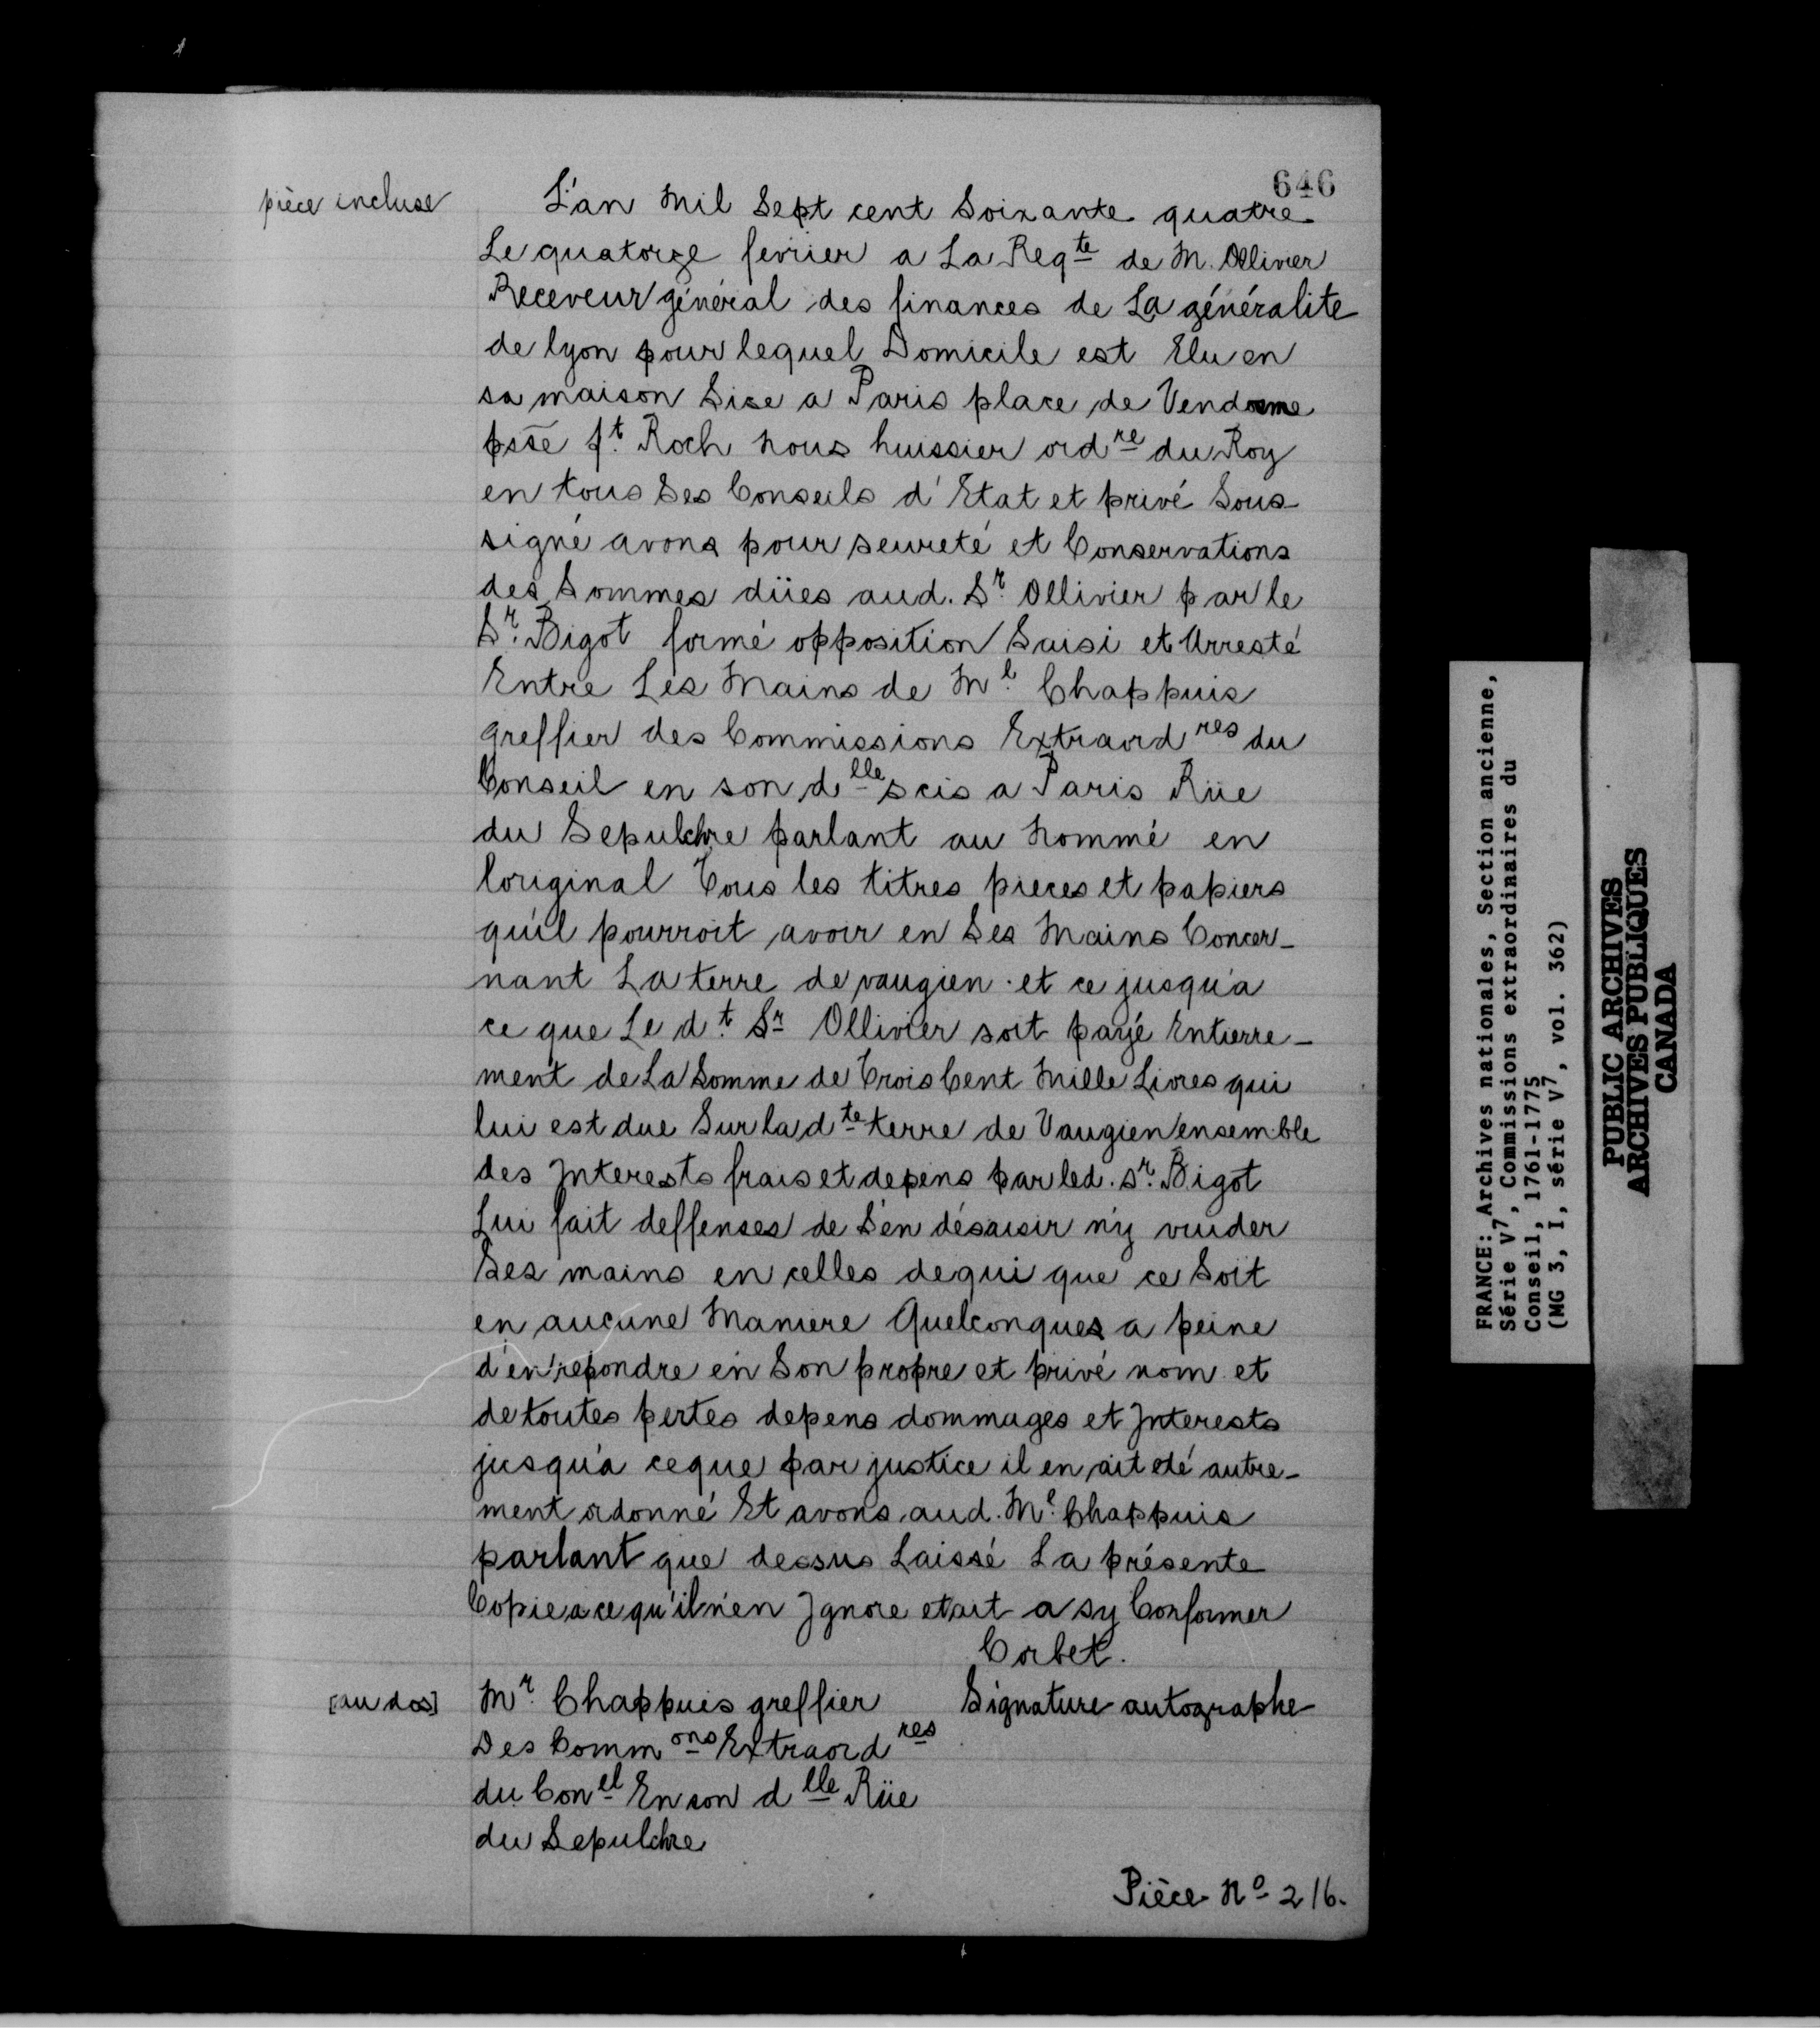 646
pièce incluse
L'an Mil Sept cent Soixante quatre
Le quatorze fevrier a La Reqte de M. Ollivier
Receveur général des finances de La généralite
de lyon pour lequel Domicile est Elu en
sa maison Sise a Paris place de Vendosme
psse St. Roch nous huissier ordre du Roy
en tous Ses Conseils d'Etat et privé Sous-
signé avons pour seureté et Conservations
des Sommes düies aud. Sr. Ollivier par le
Sr. Bigot formé opposition Saisi et Arresté
Entre Les Mains de Me. Chappuis
greffier des Commissions Extraordres du
Conseil en son dlle scis a Paris Rüe
du Sepulchre parlant au nommé en
l'original Tous les titres pieces et papiers
qu'il pourroit avoir en Ses Mains Concer-
nant La terre de vaugien et ce jusqu'a
ce que Le dt. Sr Ollivier soit payé Entierre-
ment de La Somme de Trois Cent Mille Livres qui
lui est due Sur la dte terre de Vaugien ensemble
des Interests frais et depens par led. Sr. Bigot
Lui fait deffenses de S'en désaisir n'y vuider
Ses mains en celles de qui que ce Soit
en aucune Maniere Quelconques a peine
d'en repondre en Son propre et privé nom et
de toutes pertes depens dommages et Interests
jusqu'a ce que par justice il en ait eté autre-
ment ordonné Et avons aud. Me. Chappuis
parlant que dessus Laissé La présente
Copie a ce qu'il n'en Ignore et ait a sy Conformer
Corbet.
Signature autographe
[au dos]
Mr. Chappuis greffier
Des Commons Extraordres
du Conel En son dlle Rüe
du Sepulchre
Pièce No 216.
FRANCE: Archives nationales, Section ancienne,
Série V7, Commissions extraordinaires du
Conseil, 1761-1775
(MG 3, I, série V7, vol. 362)
PUBLIC ARCHIVES
ARCHIVES PUBLIQUES
CANADA